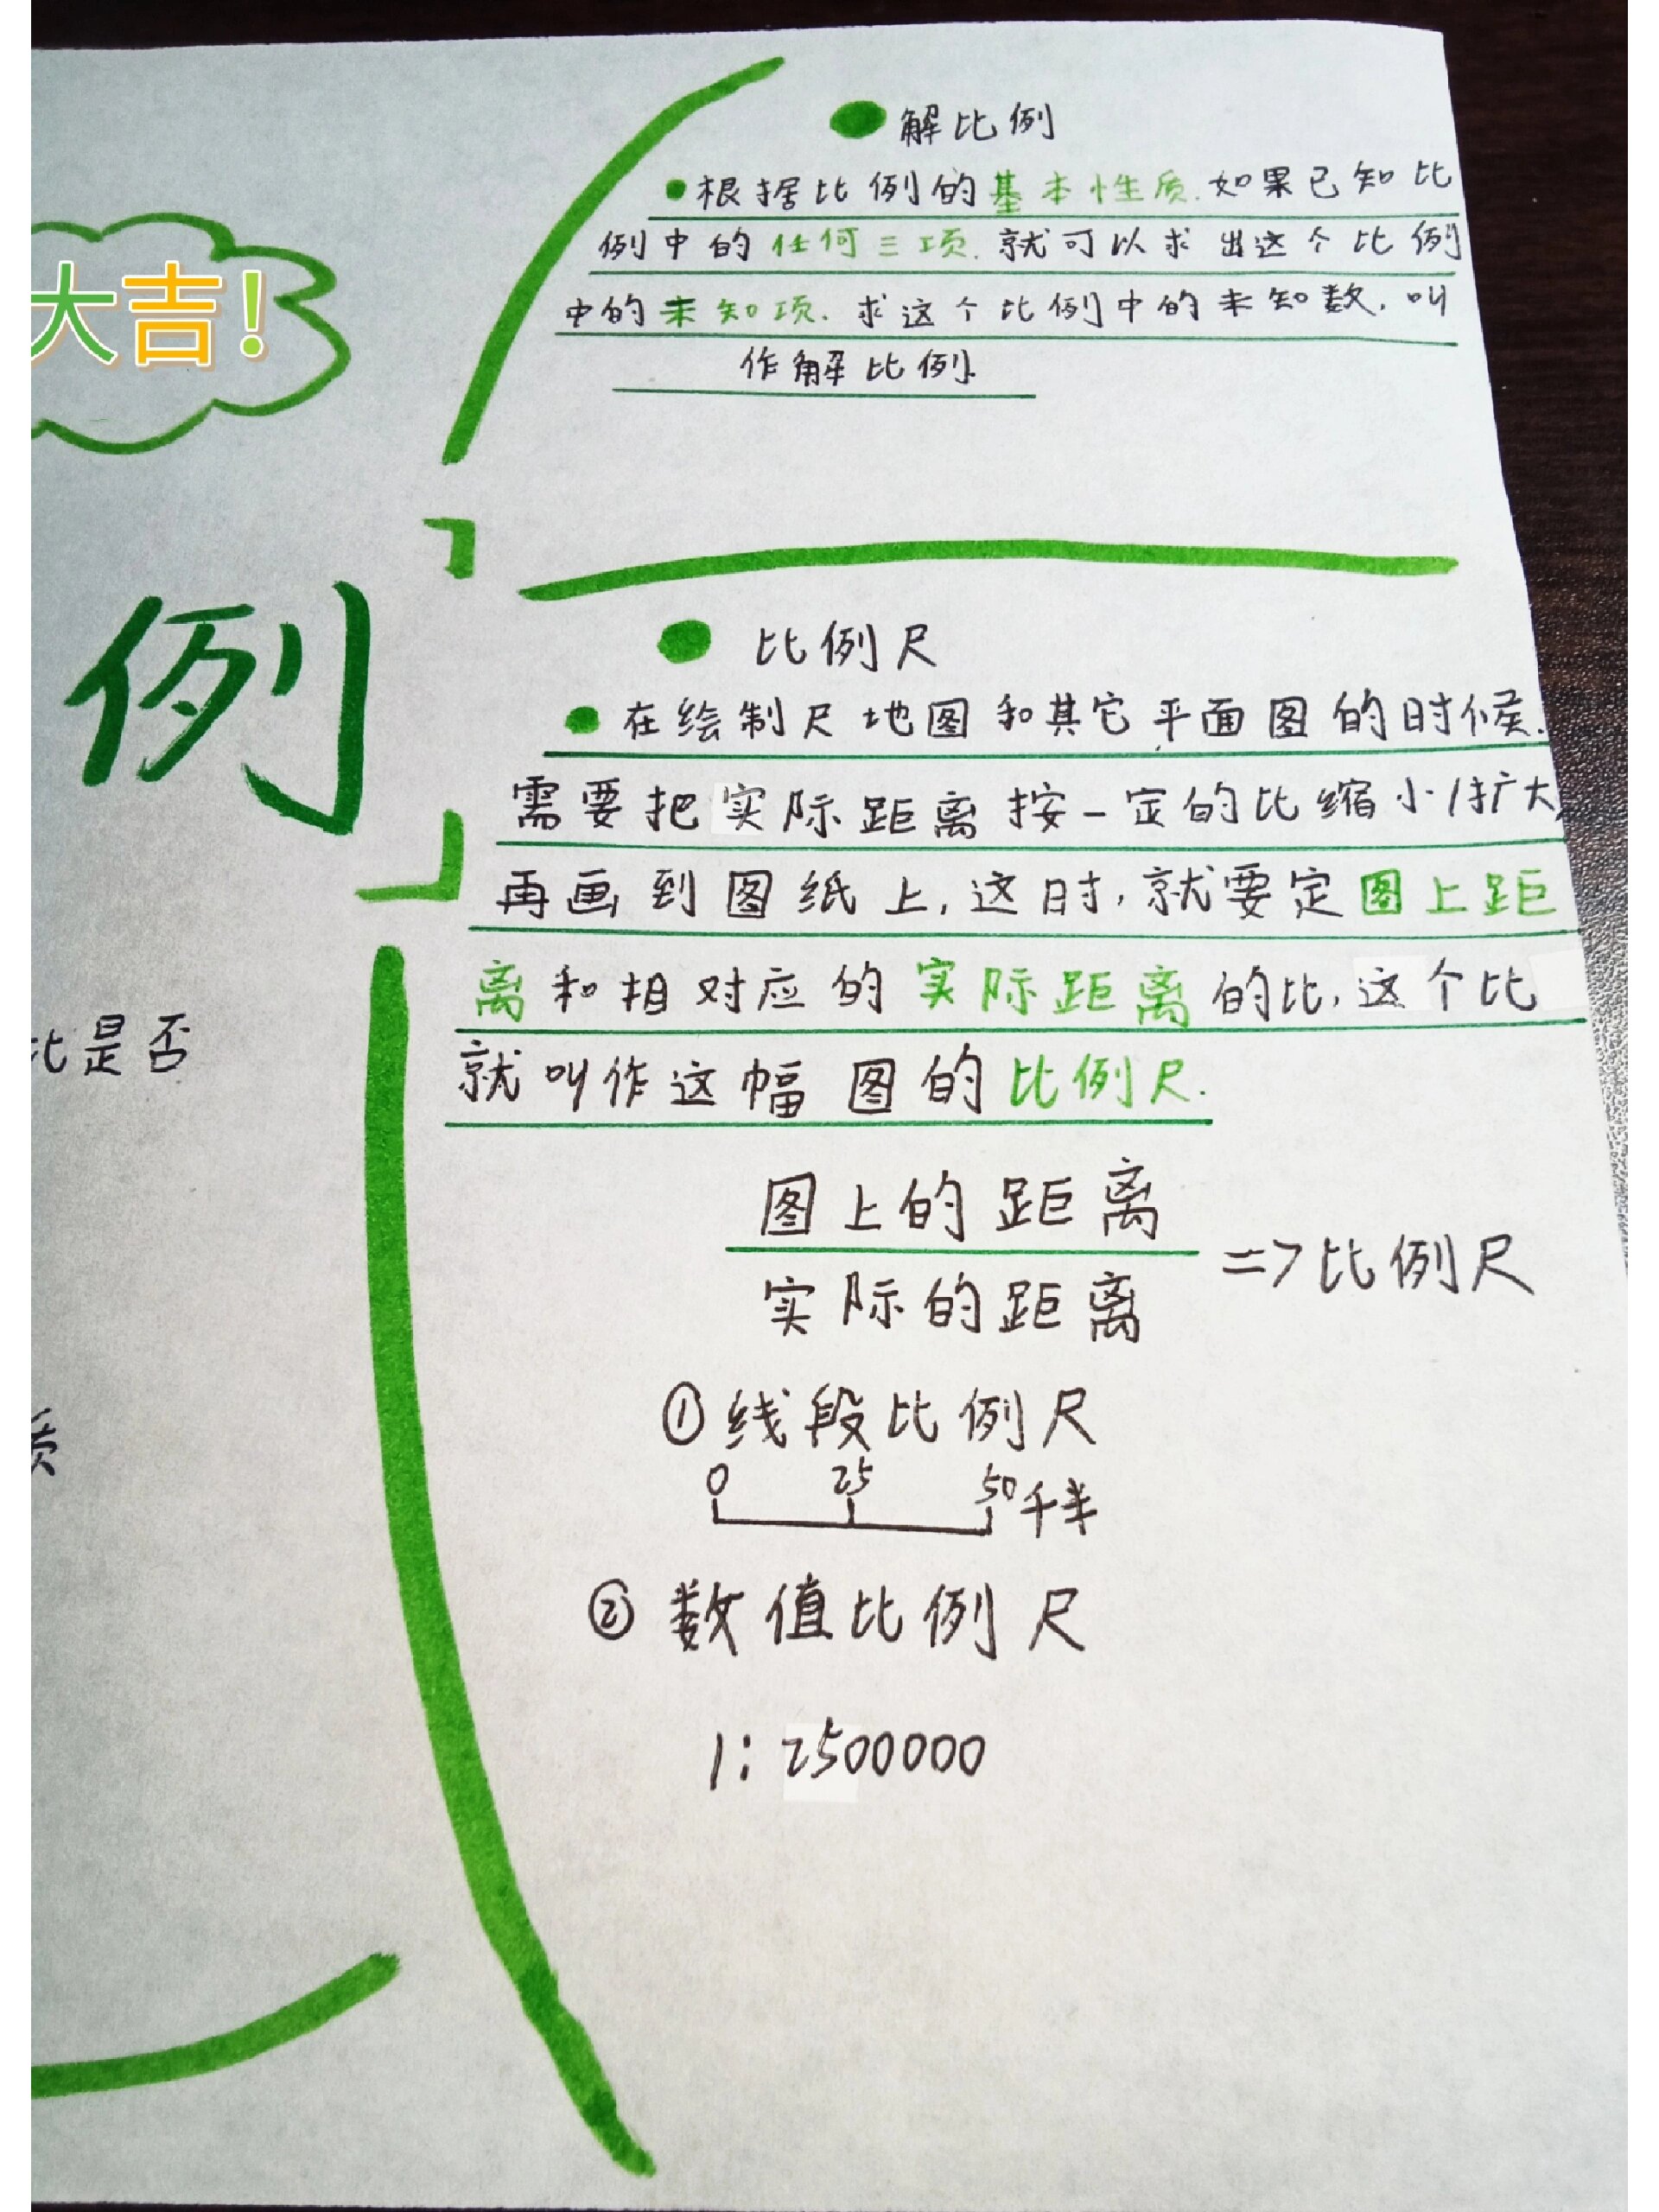 大吉!
例
比是否
质
解比例
根据比例的基本性质.如果已知比
例中的任何三项.就可以求出这个比例
中的未知项.求这个比例中的未知数.叫
作解比例.
比例尺
在绘制尺地图和其它平面图的时候.
需要把实际距离按一定的比缩小/扩大,
再画到图纸上,这时,就要定图上距
离和相对应的实际距离的比,这个比
就叫作这幅图的比例尺.
图上的距离
实际的距离
=>比例尺
①线段比例尺
0 25 50千米
②数值比例尺
1:2500000